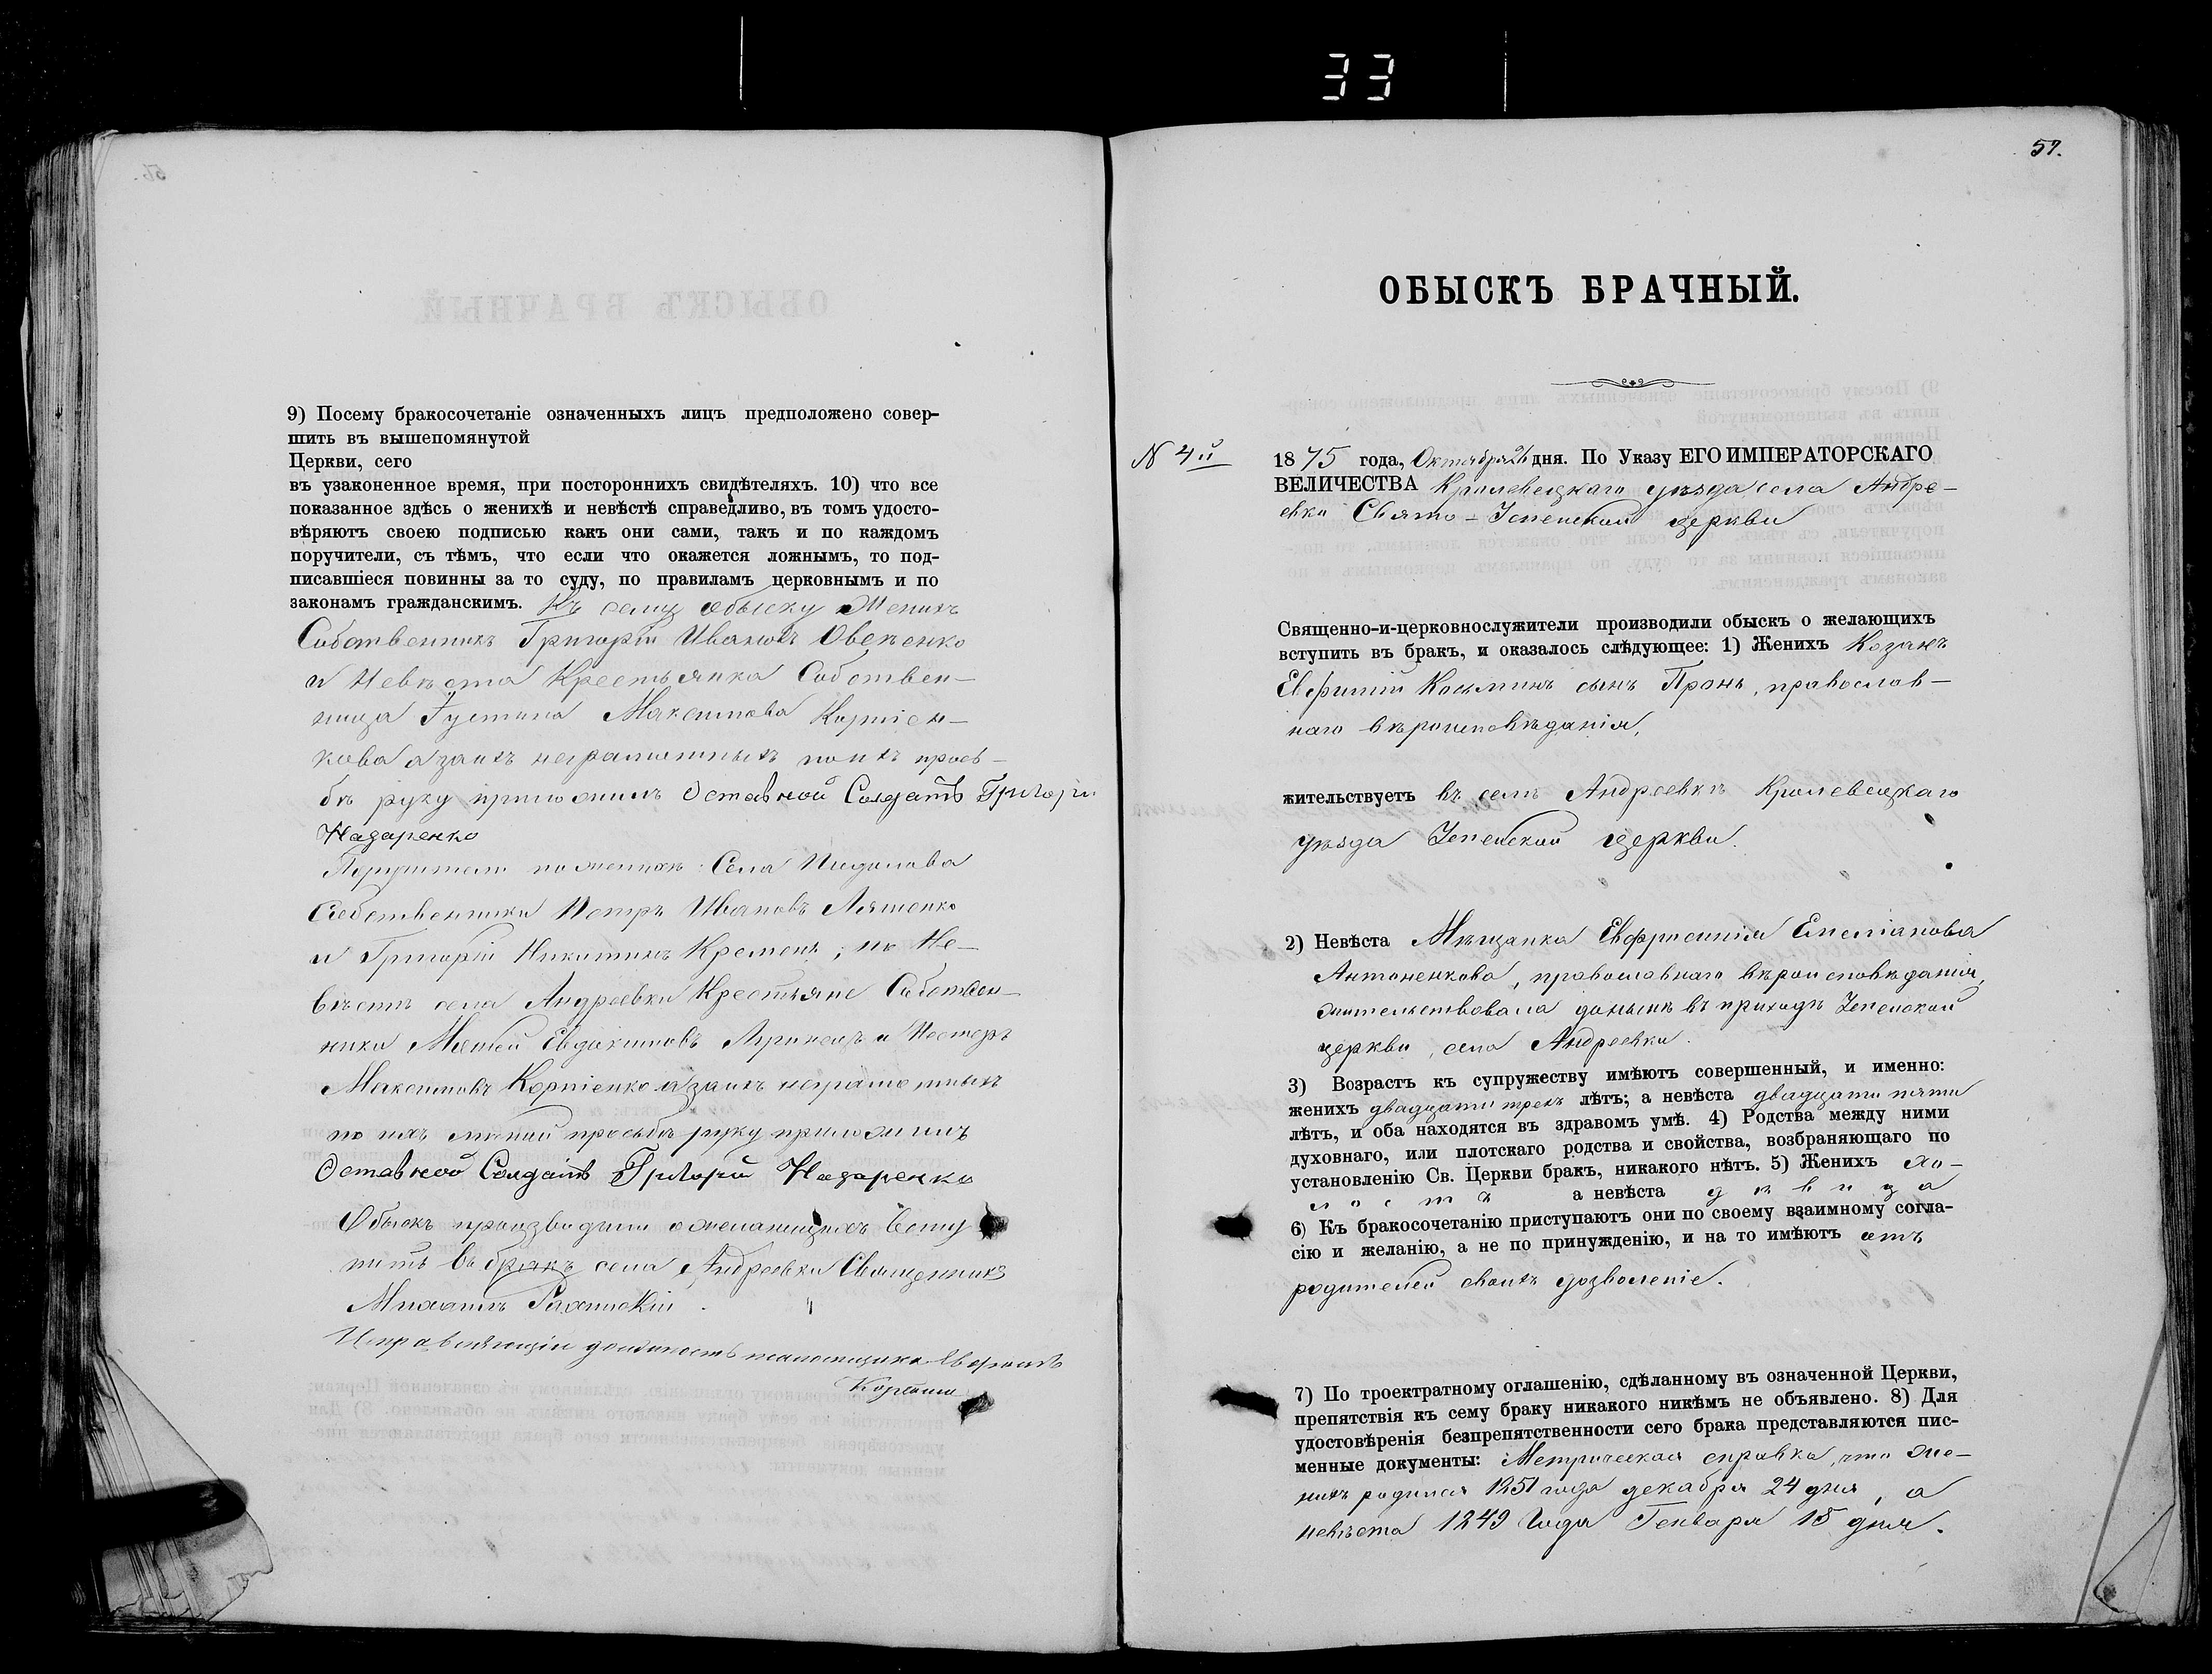 33
9) Посему бракосочетаніе означенныхъ лицъ предположено совер-
шить въ вышепомянутой
Церкви, сего
въ узаконенное время, при постороннихъ свидѣтеляхъ. 10) что все
показанное здѣсь о женихѣ и невѣстѣ справедливо, въ томъ удосто-
вѣряютъ своею подписью какъ они сами, такъ и по каждомъ
поручители, съ тѣмъ, что если что окажется ложнымъ, то под-
писавшіеся повинны за то суду, по правиламъ церковнымъ и по
законамъ гражданскимъ. Къ сему обыску Женихъ
Собственникъ Григорій Ивановъ Овеченко
и Невѣста Крестьянка Собствен-
ница Іустина Максимова Корніен-
кова а заихъ неграмотныхъ поихъ прось-
бѣ руку приложилъ Оставной Солдатъ Григори
Назаренко
Поручители по женихѣ: Села
Собственники Петръ Ивановъ Ляшенко
и Григорій Никитинъ Кремень; по Не-
вѣстѣ села Андреевки Крестьяне Собствен-
ники Евдокимовъ и Нестеръ
Максимовъ Корніенко а заихъ неграмотныхъ
по ихъ личной просьбѣ руку приложилъ
Оставной Солдатъ Григорій Назаренко
Обыскъ производили о желающихъ всту
пить въ бракъ села Андреевки Священникъ
Михаилъ
Исправляющій должность псаломщика

57.
ОБЫСКЪ БРАЧНЫЙ.
N 4й
1875 года, Октября 26 дня. По Указу ЕГО ИМПЕРАТОРСКАГО
ВЕЛИЧЕСТВА Кролевецкаго уѣзда села Андре-
евки Свято-Успенской церкви
Священно-и-церковнослужители производили обыскъ о желающихъ
вступить въ бракъ, и оказалось слѣдующее: 1) Женихъ Козакъ
Евфимій Косьминъ сынъ Пронь, православ-
наго вѣроисповѣданія,
жительствуетъ въ селѣ Андреевкѣ Кролевецкаго
уѣзда Успенской церкви.
2) Невѣста Мѣщанка Евфросинія Емеліанова
Антоненкова, православнаго вѣроисповѣданія,
жительствовала донынѣ въ приходѣ Успенской
церкви, села Андреевки.
3) Возрастъ къ супружеству имѣютъ совершенный, и именно:
женихъ двадцати трехъ лѣтъ; а невѣста двадцати пяти
лѣтъ, и оба находятся въ здравомъ умѣ. 4) Родства между ними
духовнаго, или плотскаго родства и свойства, возбраняющаго по
установленію Св. Церкви бракъ, никакого нѣтъ. 5) Женихъ хо-
лостъ а невѣста дѣвица
6) Къ бракосочетанію приступаютъ они по своему взаимному согла-
сію и желанію, а не по принужденію, и на то имѣютъ отъ
родителей своихъ дозволеніе.
7) По троектратному оглашенію, сдѣланному въ означенной Церкви,
препятствія къ сему браку никакого никѣмъ не объявлено. 8) Для
удостовѣренія безпрепятственности сего брака представляются пис-
менные документы: Метрическая справка, что же-
нихъ родился 1851 года декабря 24 дня, а
невѣста 1849 Года Генваря 18 дня.